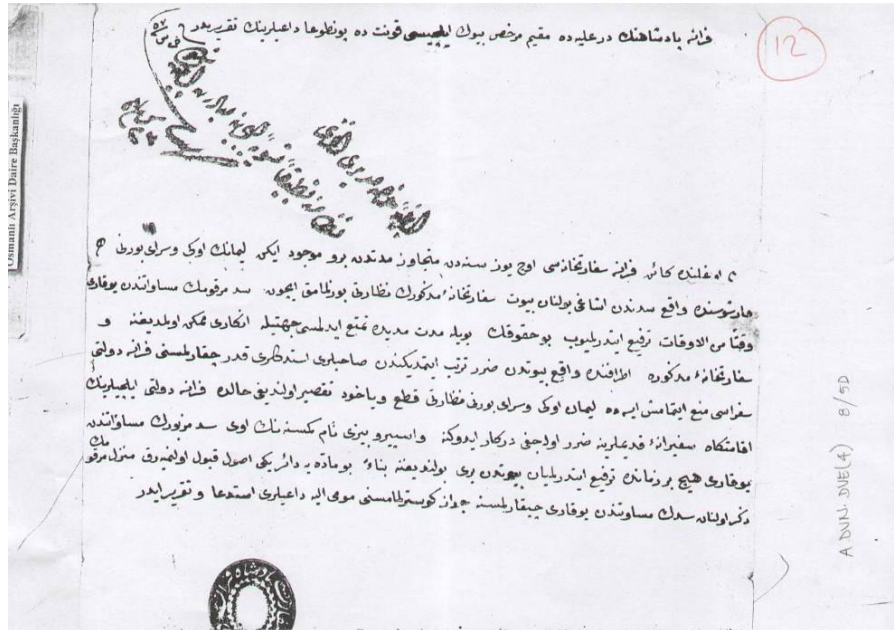 فرانسه پادشاهنك در عليه ده مقيم مرخص بيوك ايلچيسى قونت ده پونطوعا داعيلرينك تقريريدر
12
Osmanlı Arşivi Daire Başkanlığı
كائن فرانسه سفارتخانه سى اوچ يوز سنه دن متجاوز مدتدن برو موجود ايكن ليمانك اوكى وسراى بورنى
چارشوسنده واقع سددن اشاغى بولنان بيوت سفارتخانهٔ مذكورك نظارتى بوزلمامق ايچون سد مرقومك مساواتندن يوقارى
وقتاً من الاوقات ترفيع ايتدرليوب بو حقوقك بويله مدت مديده تمتع ايدلمسى جهتيله انكارى ممكن اولمديغنه و
سفارتخانهٔ مذكوره اطرافنده واقع بيوتدن ضرر ترتب ايتمديكندن صاحبلرى استدكلرى قدر چقارلمسنى فرانسه دولتى
سفراسى منع ايتمامش ايسه ده ليمان اوكى وسراى بورنى نظارتى قطع وياخود تقصير اولنديغى حالده فرانسه دولتى ايلچيلرينك
اقامتكاه سفيرانهٔ قديملرينه ضرر اوله جغى دركار ايدوكنه و اسپيرو پيزنى نام كسنه نك اوى سد مزبورك مساواتندن
يوقارى هيچ بر زمانده ترفيع ايتدرلميان بيوتدن برى بولنديغنه بناءً بو ماده يه دائر يكى اصول قبول اولنميه رق منزل مرقومك
ذكر اولنان سدك مساواتندن يوقارى چيقارلمسنه جواز كوسترلمامسنى مومى اليه داعيلرى استدعا و تقرير ايدر
A.DVN.DVE(4) 8/50